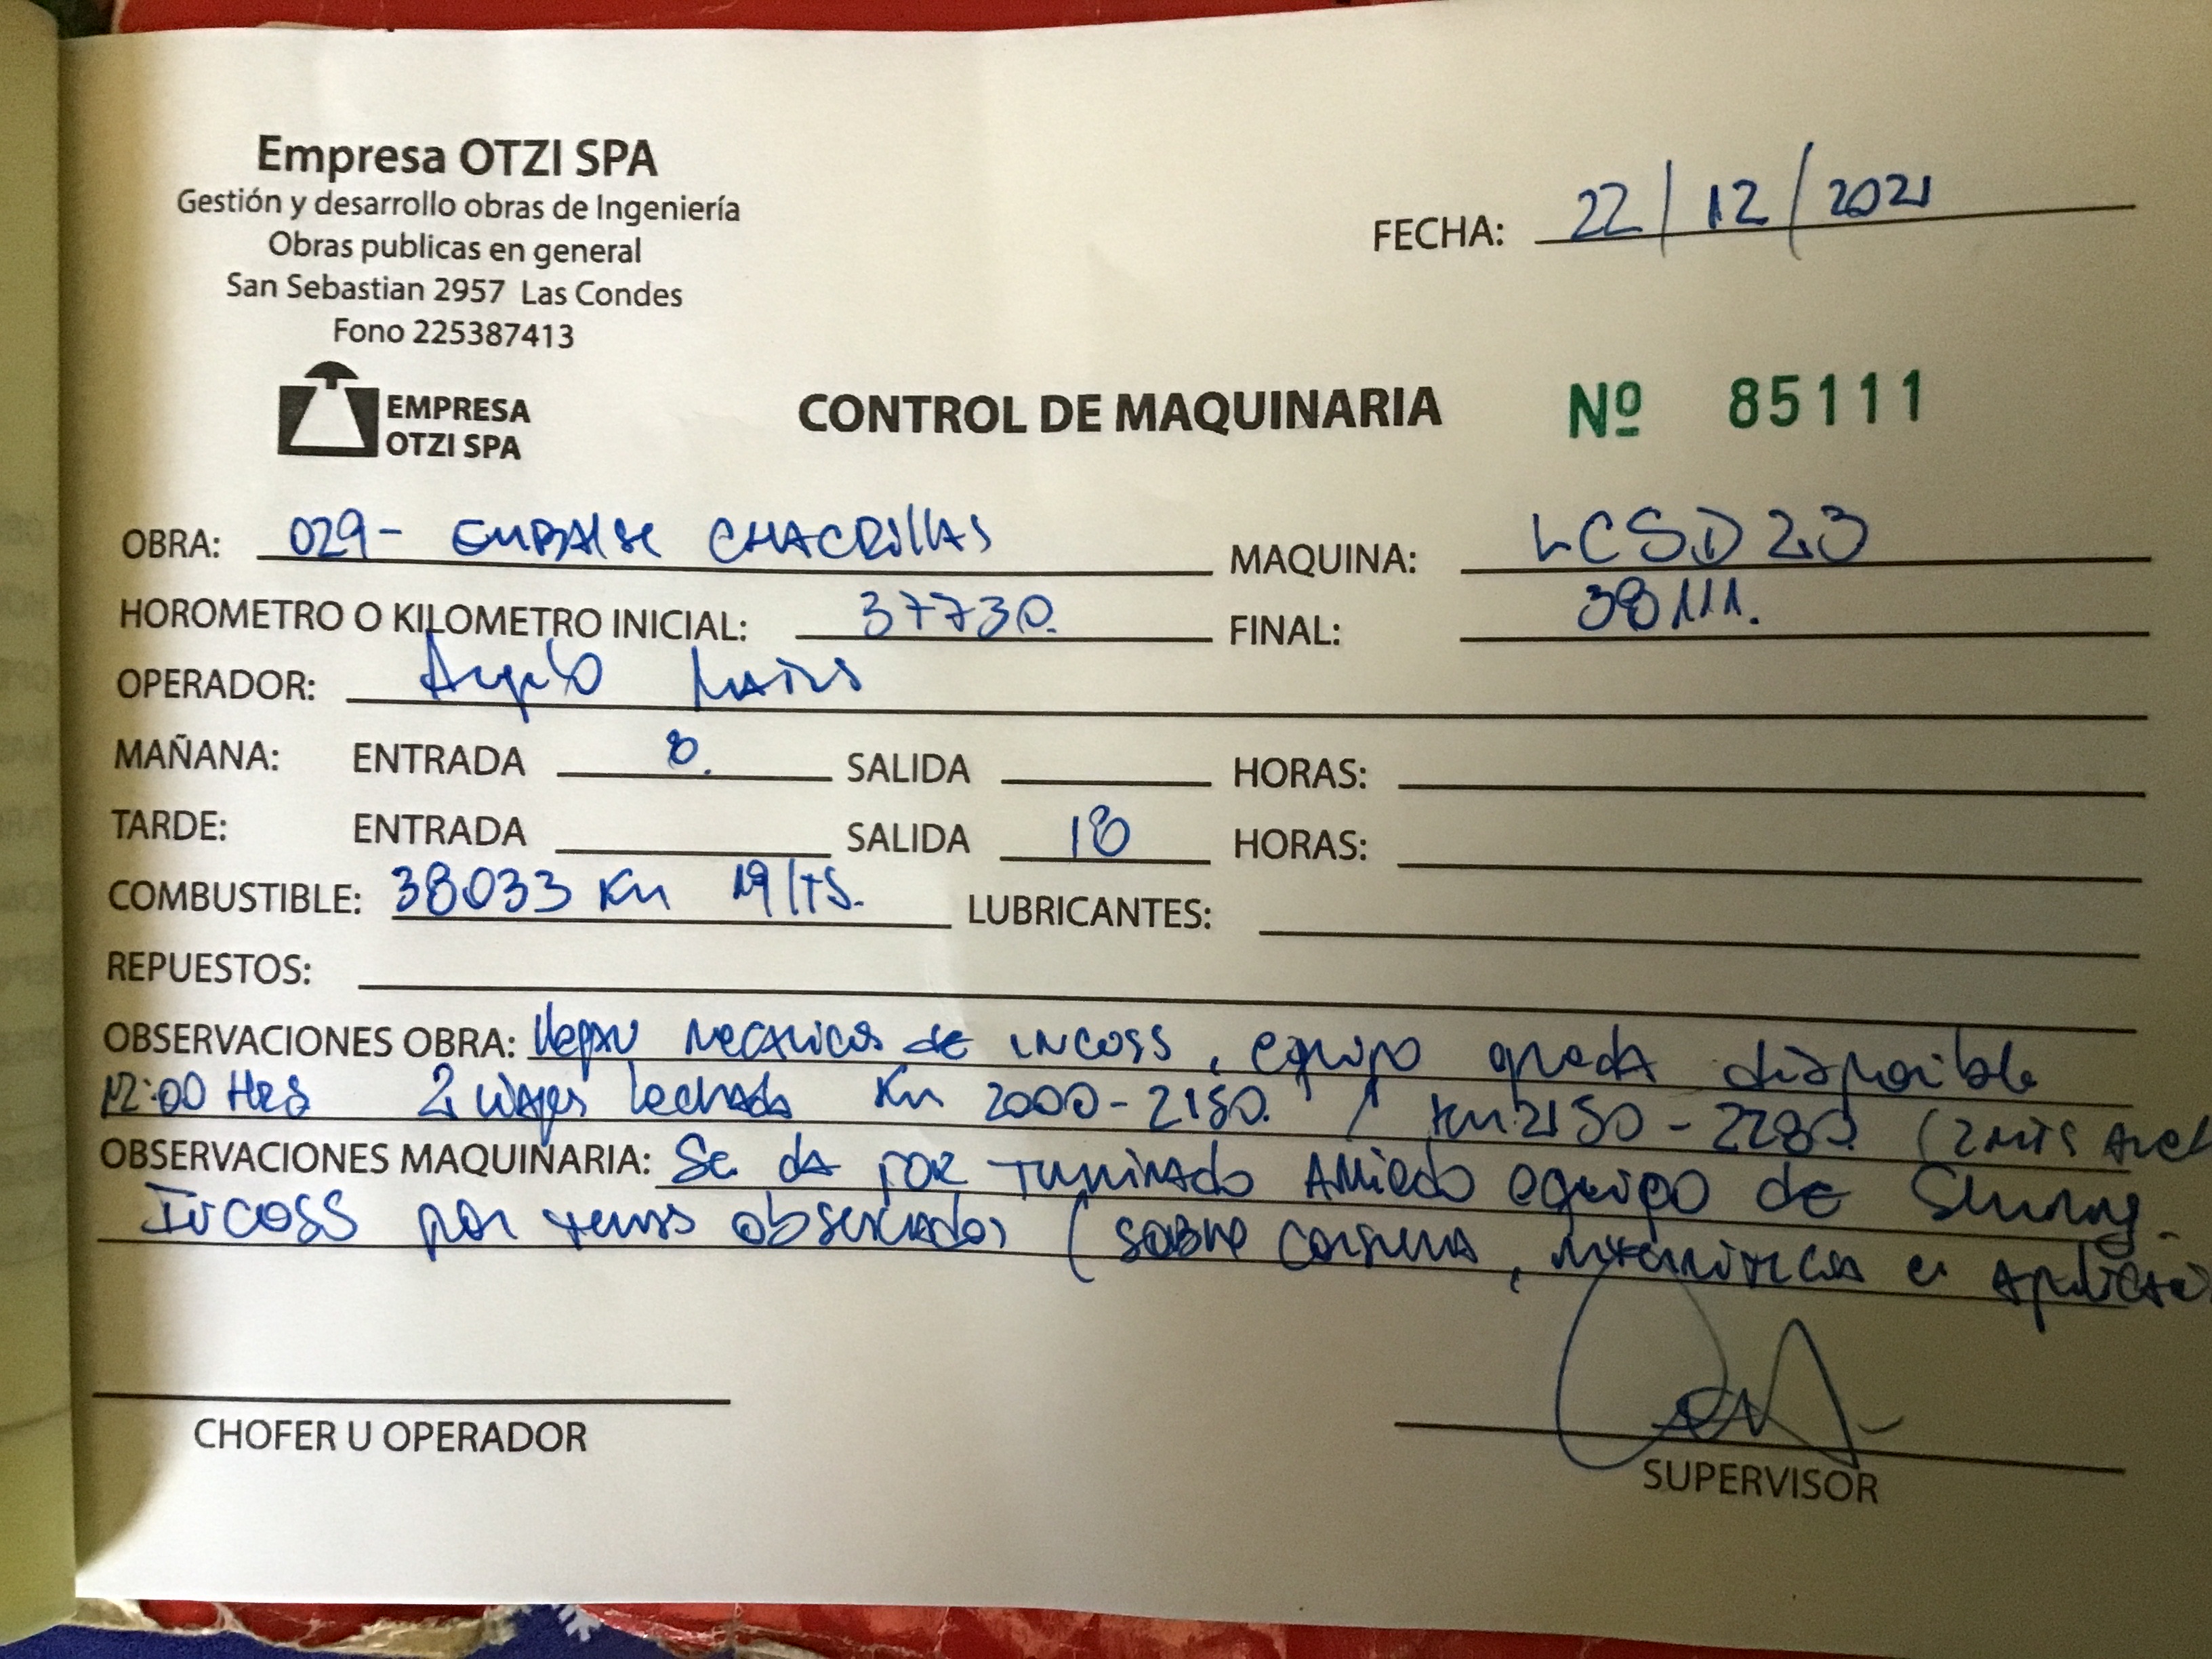 Empresa OTZI SPA
Gestión y desarrollo obras de Ingeniería
Obras publicas en general
San Sebastian 2957 Las Condes
Fono 225387413
FECHA: 22/12/2021
EMPRESA
OTZI SPA
CONTROL DE MAQUINARIA
Nº 85111
OBRA: 029- CHACRILLAS MAQUINA: LCSD 23
HOROMETRO O KILOMETRO INICIAL: 37730. FINAL: 38111.
OPERADOR:
MAÑANA: ENTRADA 8. SALIDA HORAS:
TARDE: ENTRADA SALIDA 18 HORAS:
COMBUSTIBLE: 38033 Km 19 lts. LUBRICANTES:
REPUESTOS:
OBSERVACIONES OBRA: mecanicos de incoss, equipo queda disponible
12:00 Hrs 2 viajes lechada Km 2000-2150. / Km 2150-2280 (2 mts
OBSERVACIONES MAQUINARIA: Se da por terminado equipo de
Incoss por temas observados (sobre
CHOFER U OPERADOR
SUPERVISOR